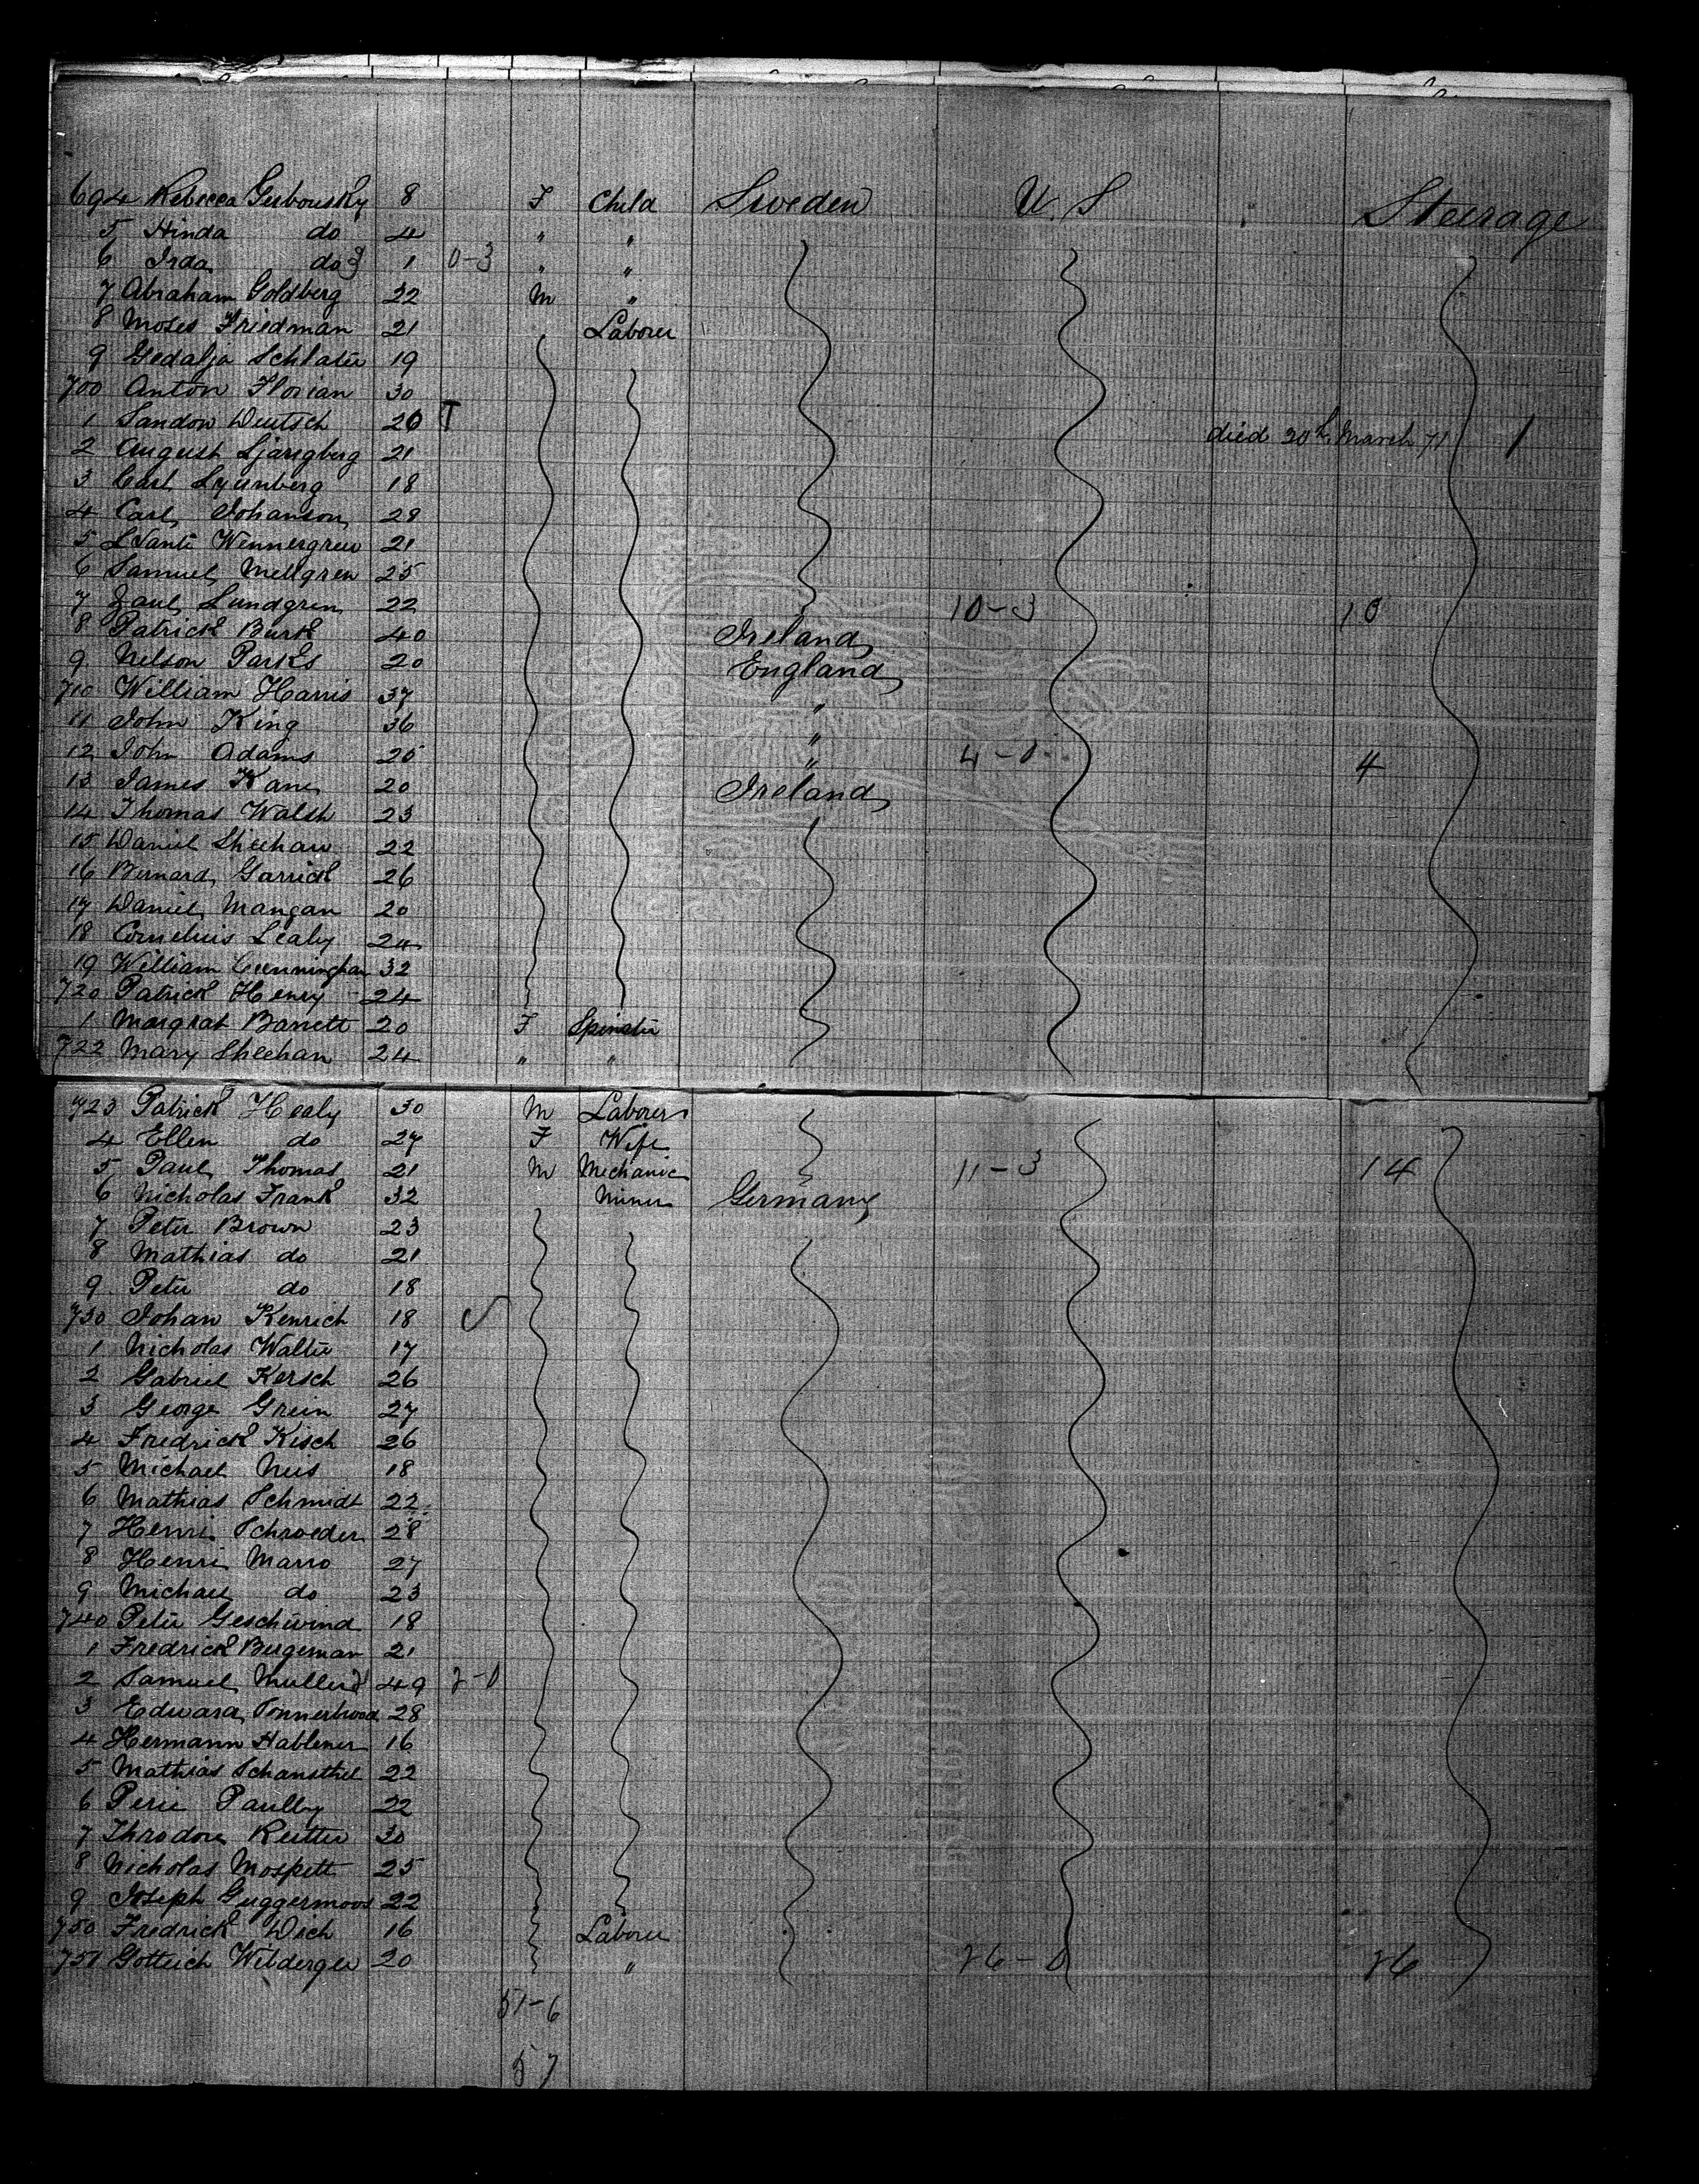 694 Rebecca Gerbousky 8 F Child Sweden U. S Steerage
5 Hinda do 4 " "
6 Irda do 1 0-3 " "
7 Abraham Goldberg 22 M "
8 Moses Friedman 21 Laborer
9 Gedalja Schlater 19
700 Anton Florian 30
1 Sandow Deutsch 26 T died 20th March 71 1
2 August Ljangberg 21
3 Carl Lyunberg 18
4 Carl Johanson 28
5 Wennergren 21
6 Samuel Mellgren 25
7 Paul Lundgren 22 10-3 10
8 Patrick Burk 40 Ireland
9 Nelson Parks 20 England
710 William Harris 37 "
11 John King 36 "
12 John Adams 25 " 4-0 4
13 James Kane 20 Ireland
14 Thomas Walsh 23
15 Daniel Sheehan 22
16 Bernard Garrick 26
17 Daniel Mangan 20
18 Cornelius Lealy 24
19 William Cunningham 32
720 Patrick Heney 24
1 Margrat Barrett 20 F Spinster
722 Mary Sheehan 24 " "
723 Patrick Healy 30 M Laborer
4 Ellen do 27 F Wife
5 Paul Thomas 21 M Mechanic 11-3 14
6 Nicholas Frank 32 Miner Germany
7 Peter Brown 23
8 Mathias do 21
9 Peter do 18
730 Johan Kenrich 18
1 Nicholas Walter 17
2 Gabriel Kersch 26
3 George Grein 27
4 Fredrick Kisch 26
5 Michael Neis 18
6 Mathias Schmidt 22
7 Henri Schroeder 28
8 Henri Marro 27
9 Michael do 23
740 Peter Geschwind 18
1 Fredrick Bergeman 21
2 Samuel Muller 49 2-0
3 Edward 28
4 Hermann Hablener 16
5 Mathias Schansthel 22
6 Perie Paulby 22
7 Throdore Reitter 30
8 Nicholas Mospett 25
9 Joseph Guggermoos 22
750 Fredrick Dich 16 Laborer
751 Gotteich Wilderger 20 " 26-0 26
51-6
57